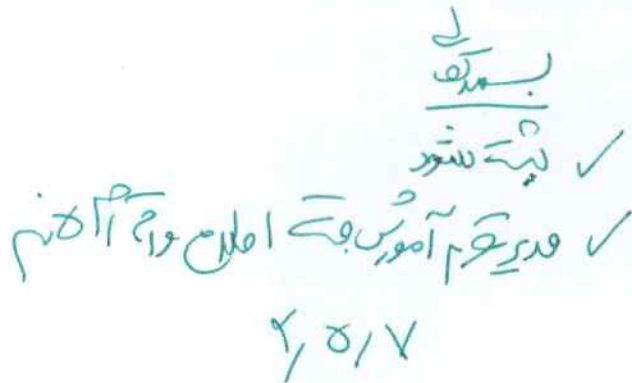 بسمه تعالی
✓ ثبت شود
✓ مدیر محترم آموزش جهت اطلاع و اقدام لازم
۲/۵/۷